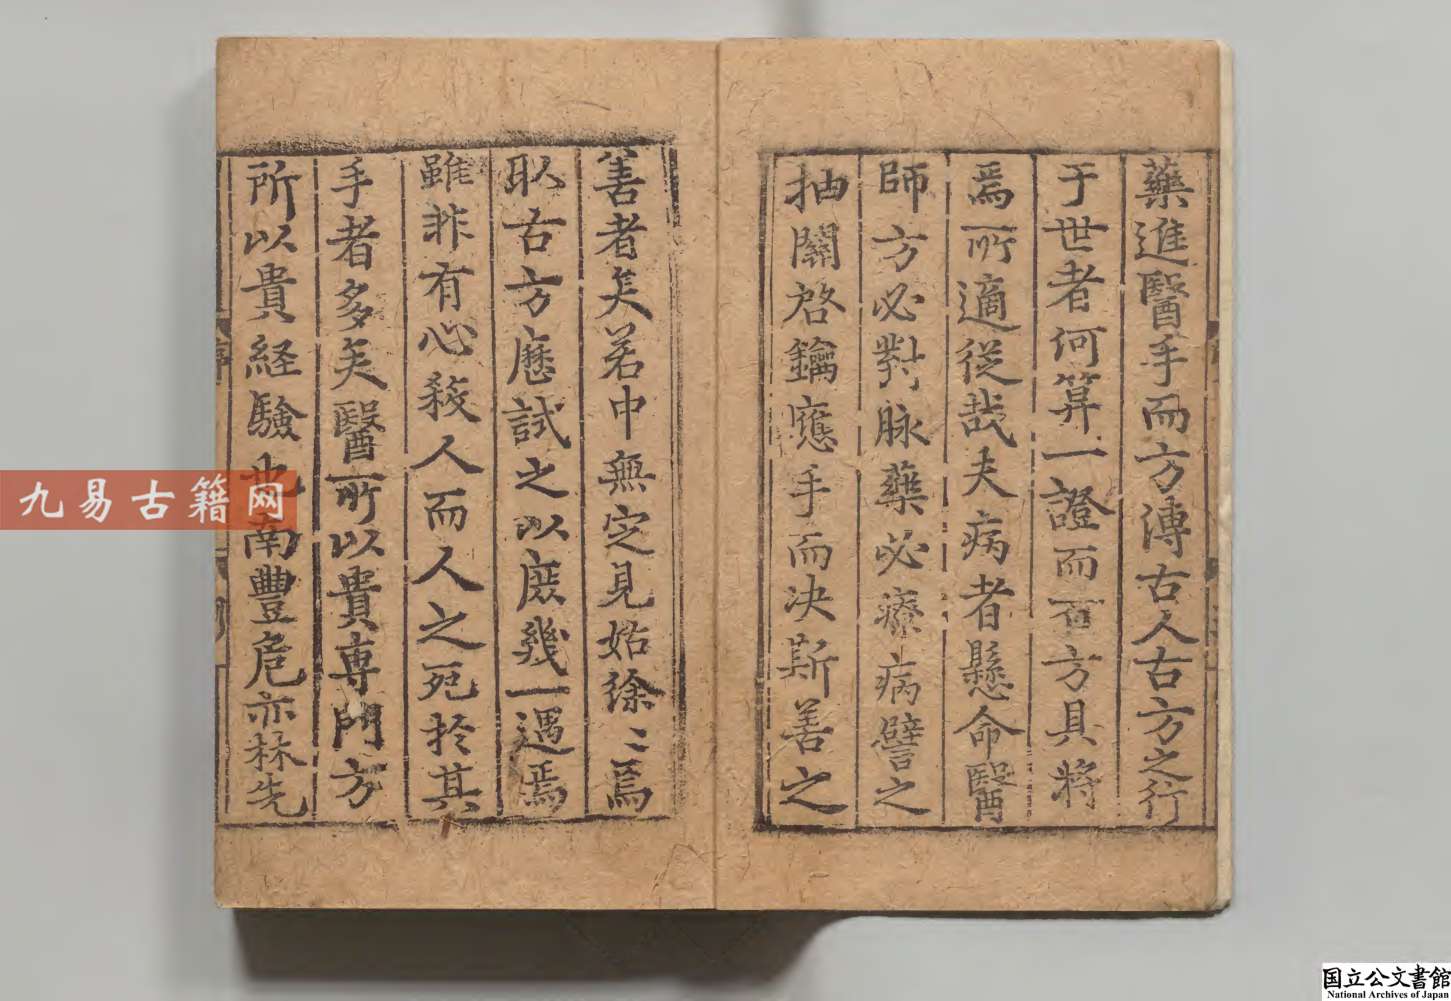 藥進醫手而方漙古人古方之行
于世者何筭一證而百方具將
焉所適從哉夫病者懸命醫
師方必對脉藥必療病譬之
抽關啓鑰應手而決斯善之
善者矣若中無定見姑徐〻焉
取古方歷試之以庶幾一遇焉
雖非有心殺人而人之死於其
手者多矣醫所以貴專門方
所以貴経驗也南豐危亦林先
九易古籍网
国立公文書館
National Archives of Japan